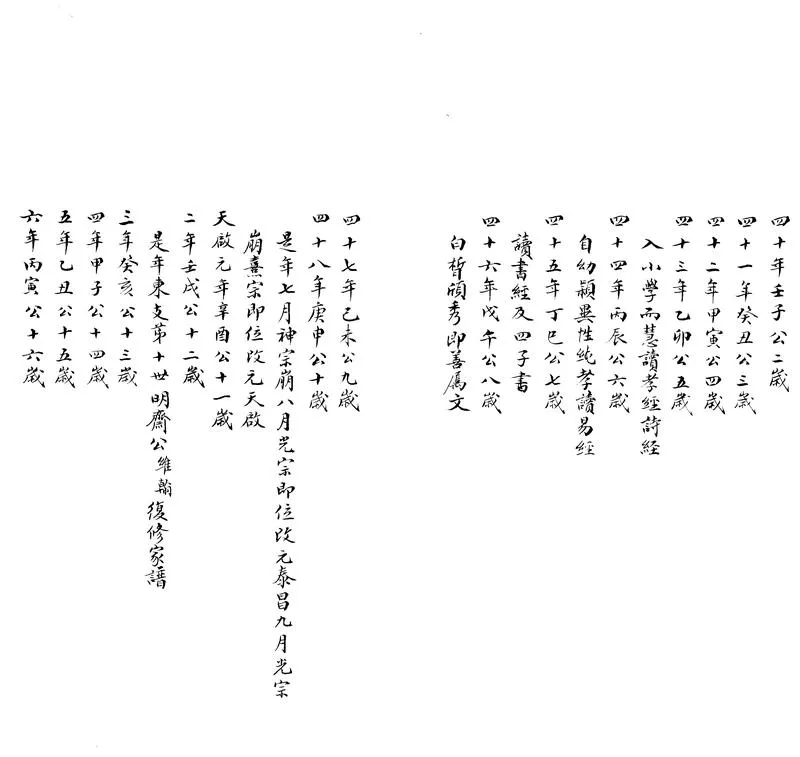 四十年壬子公二歲
四十一年癸丑公三歲
四十二年甲寅公四歲
四十三年乙卯公五歲
入小學而慧讀孝經詩經
四十四年丙辰公六歲
自幼穎異性純孝讀易經
四十五年丁巳公七歲
讀書經及四子書
四十六年戊午公八歲
白皙頎秀即善屬文
四十七年己未公九歲
四十八年庚申公十歲
是年七月神宗崩八月光宗即位改元泰昌九月光宗
崩熹宗即位改元天啟
天啟元年辛酉公十一歲
二年壬戌公十二歲
是年東支第十世明齋公維翰復修家譜
三年癸亥公十三歲
四年甲子公十四歲
五年乙丑公十五歲
六年丙寅公十六歲